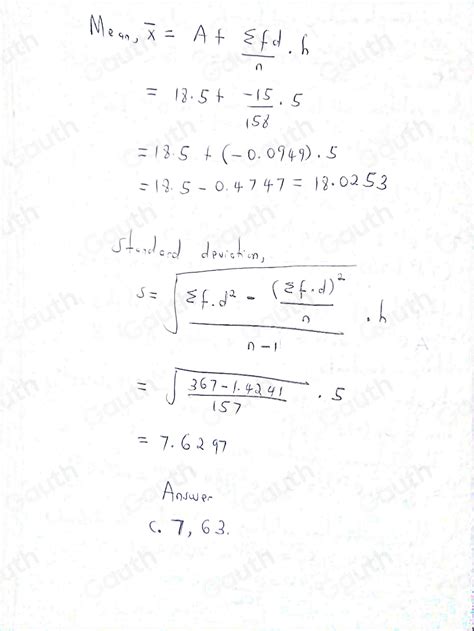 Mean, x̄ = A + Σfd/n . h
= 18.5 + -15/158 . 5
= 18.5 + (-0.0949) . 5
= 18.5 - 0.4747 = 18.0253
Standard deviation,
s = √((Σf.d² - (Σf.d)²/n)/(n-1)) . h
= √((367-1.4241)/157) . 5
= 7.6297
Answer
C. 7,63.